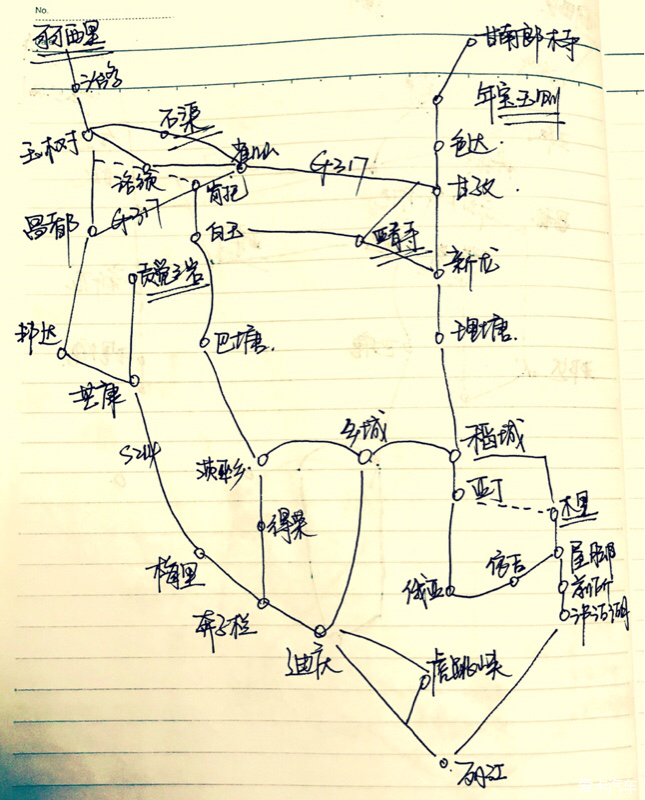 No.
雨西里
治多
玉树
石渠
雀儿山
洛须
G317
甘南郎木寺
年宝玉则
色达
甘孜
昌都
G317
岗托
白玉
亚青寺
新龙
贡觉三岩
邦达
巴塘
理塘
芒康
S214
茨巫乡
乡城
稻城
亚丁
木里
得荣
梅里
奔子栏
俄亚
依吉
屋脚
前所
泸沽湖
迪庆
虎跳峡
丽江